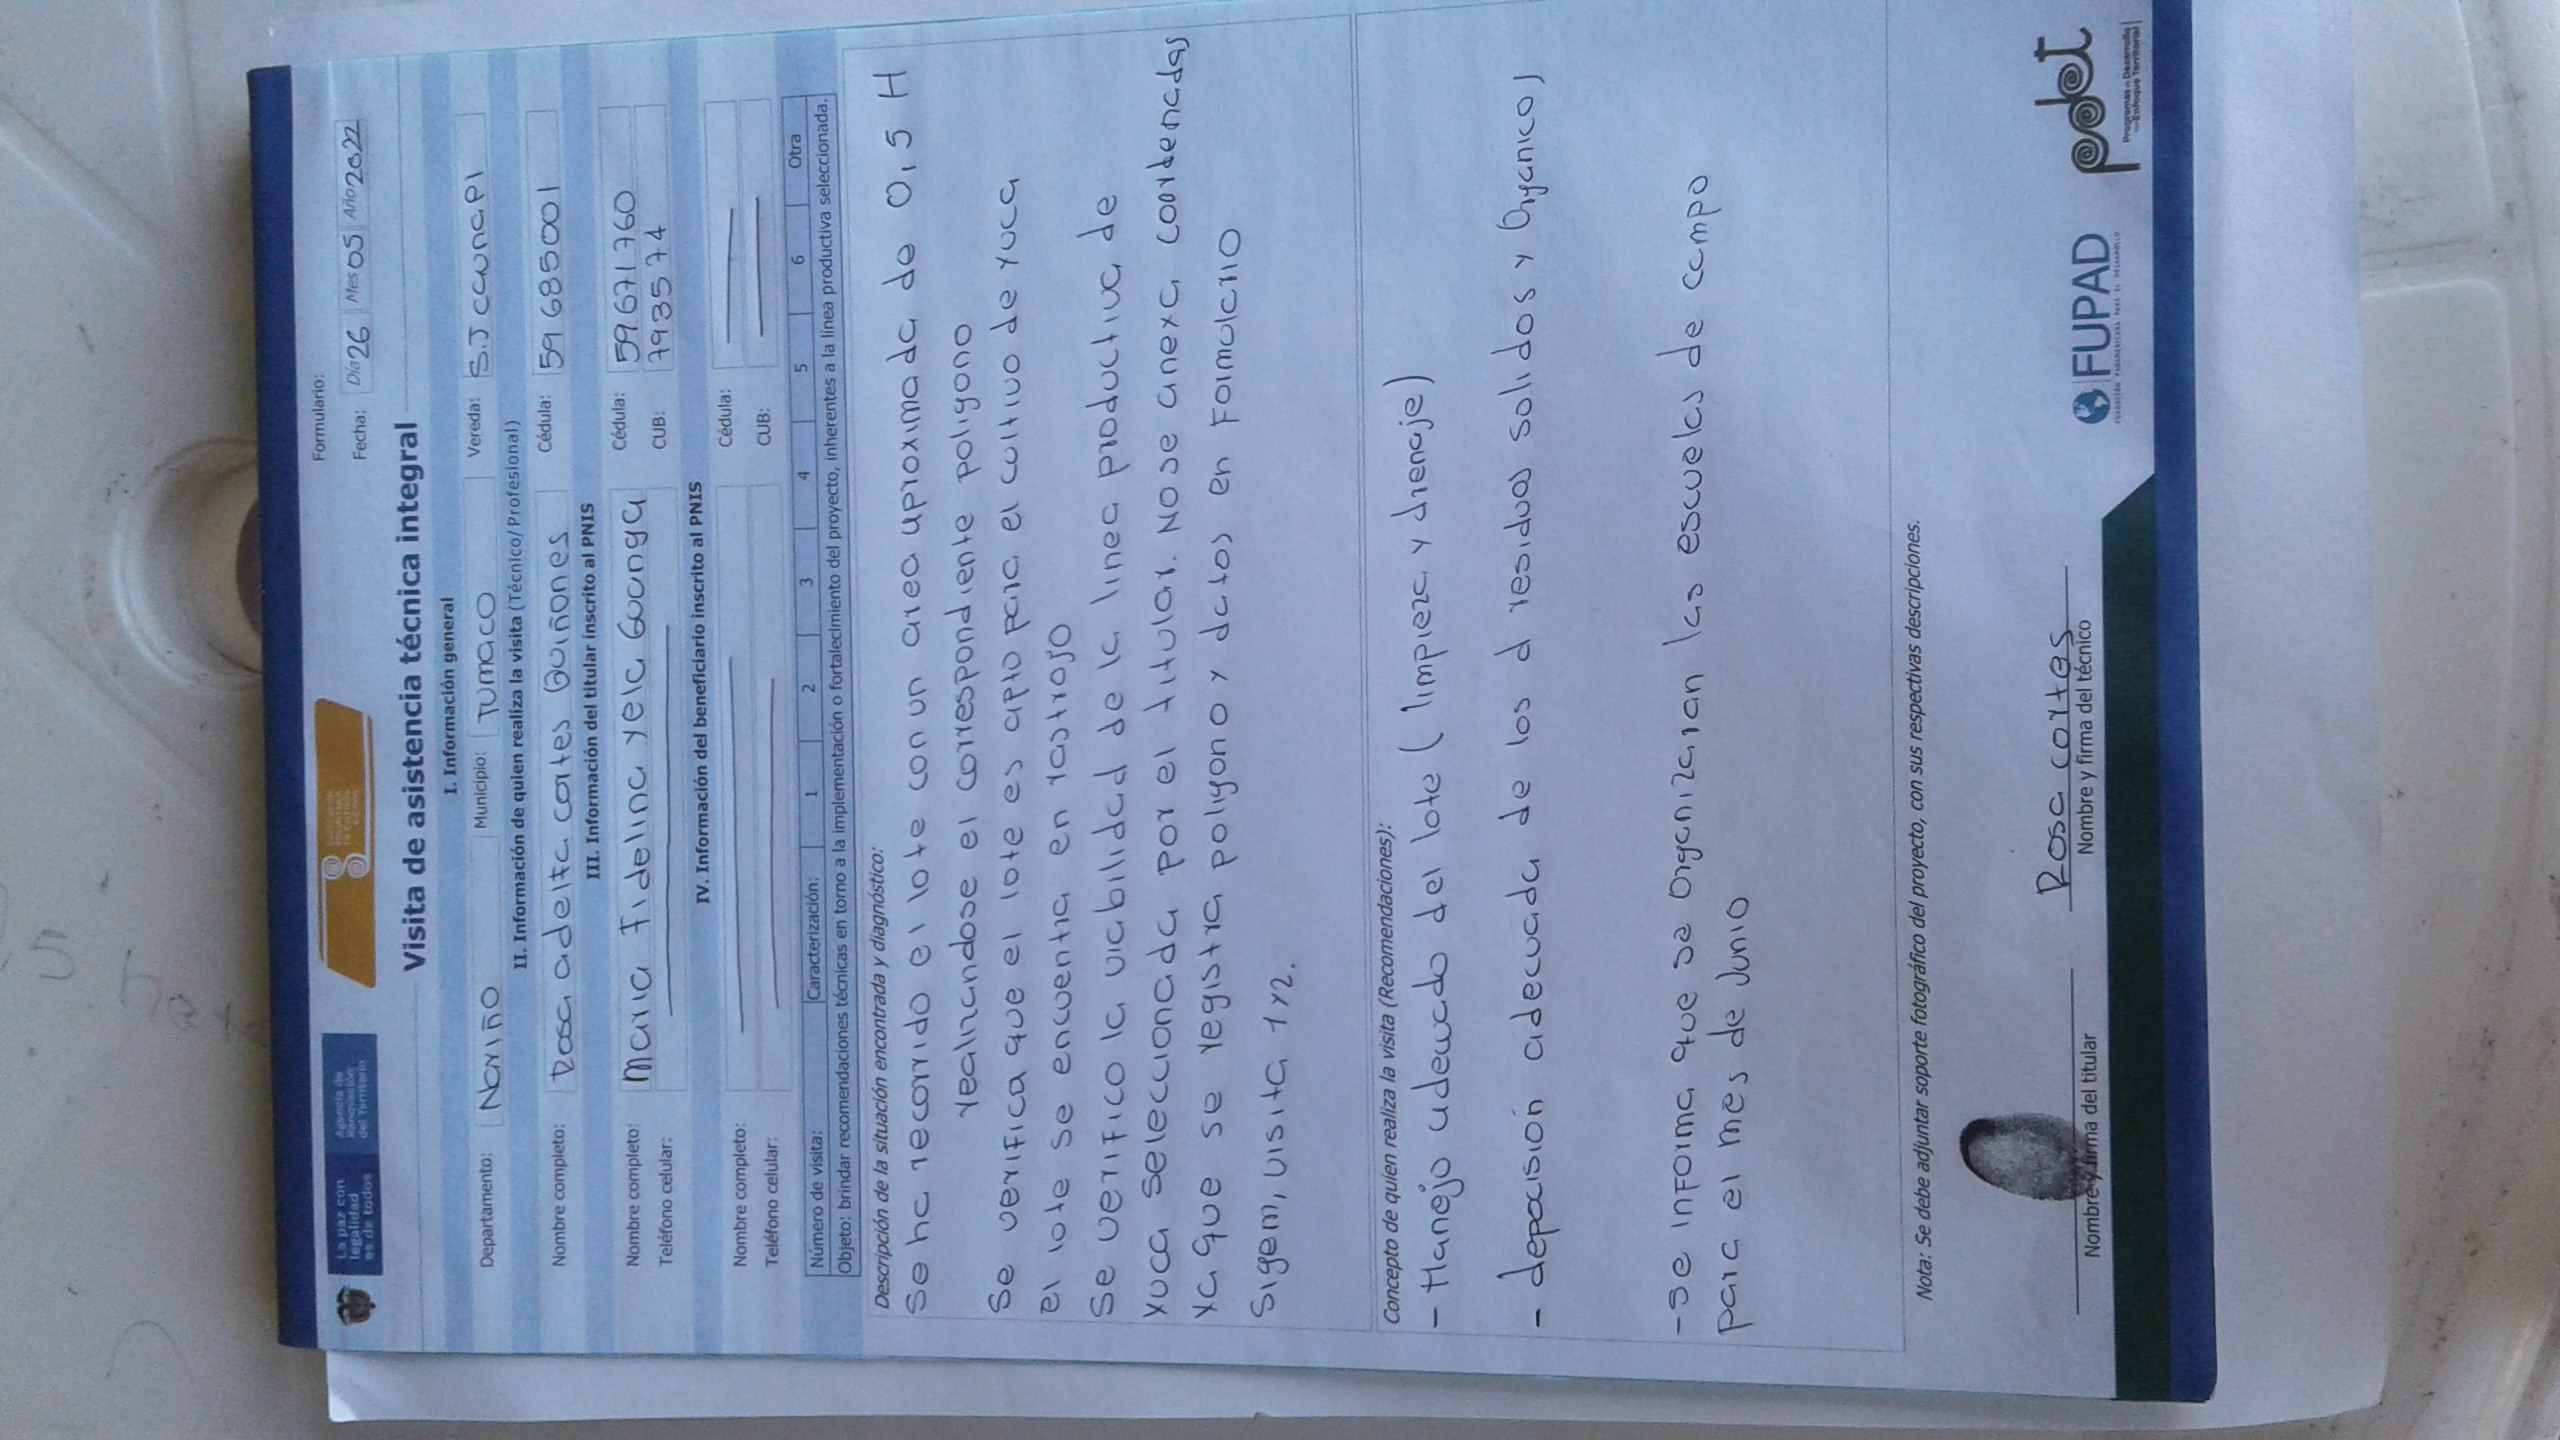 La paz con
legalidad
es de todos
Agencia de
Renovación
del Territorio
Formulario:
Fecha: Día 26 Mes 05 Año 2022
Visita de asistencia técnica integral
I. Información general
Departamento: Nariño Municipio: Tumaco Vereda: S.J caunapi
II. Información de quien realiza la visita (Técnico/Profesional)
Nombre completo: Rosa adelta cortes Quiñones Cédula: 59685001
III. Información del titular inscrito al PNIS
Nombre completo: Maria Fidelina yela Guanga Cédula: 59671760
Teléfono celular: CUB: 793574
IV. Información del beneficiario inscrito al PNIS
Nombre completo: Cédula:
Teléfono celular: CUB:
Número de visita: Caracterización: 1 2 3 4 5 6 Otra
Objeto: brindar recomendaciones técnicas en torno a la implementación o fortalecimiento del proyecto, inherentes a la línea productiva seleccionada.
Descripción de la situación encontrada y diagnóstico:
Se ha recorrido el lote con un area aproximada de 0,5 H
realizandose el correspondiente poligono
Se verifica que el lote es apto para el cultivo de yuca
el lote se encuentra en rastrojo
Se verifico la viabilidad de la linea productiva de
yuca seleccionada por el titular. No se anexa coordenadas
ya que se registra poligono y datos en Formulario
Sigem, visita 1 y 2.
Concepto de quien realiza la visita (Recomendaciones):
- Manejo adeucado del lote ( limpieza y drenaje)
- deposición adecuada de los d residuos solidos y Organicos
- se informa que se organizaran las escuelas de campo
para el mes de Junio
Nota: Se debe adjuntar soporte fotográfico del proyecto, con sus respectivas descripciones.
Rosa cortes
Nombre y firma del titular Nombre y firma del técnico
FUPAD
FUNDACIÓN PANAMERICANA PARA EL DESARROLLO
pdet
Programas de Desarrollo
con Enfoque Territorial